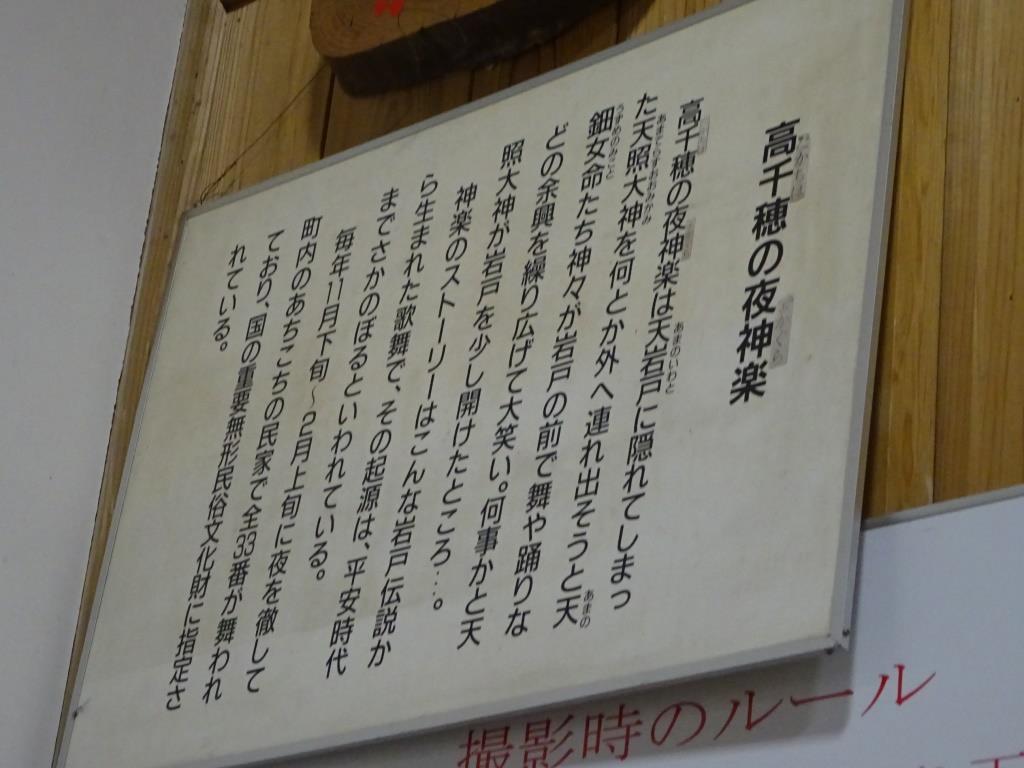 高千穂の夜神楽
高千穂の夜神楽は天岩戸に隠れてしまっ
た天照大神を何とか外へ連れ出そうと天
鈿女命たち神々が岩戸の前で舞や踊りな
どの余興を繰り広げて大笑い。何事かと天
照大神が岩戸を少し開けたところ…。
神楽のストーリーはこんな岩戸伝説か
ら生まれた歌舞で、その起源は、平安時代
までさかのぼるといわれている。
毎年11月下旬～2月上旬に夜を徹して
町内のあちこちの民家で全33番が舞われ
ており、国の重要無形民俗文化財に指定さ
れている。
撮影時のルール